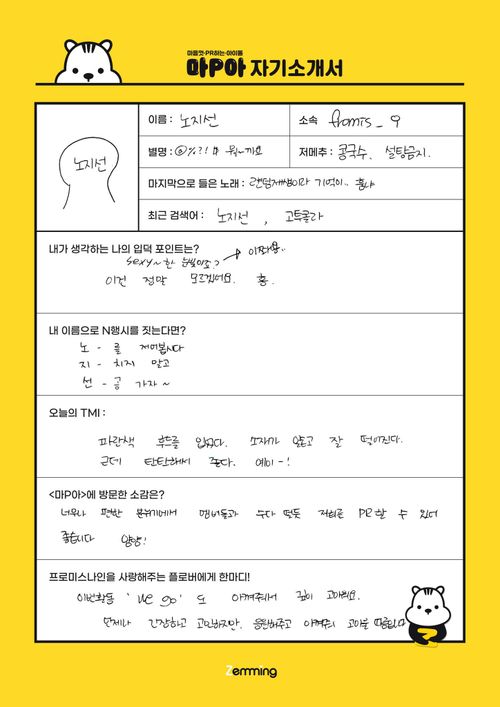 마음껏·PR하는·아이돌
마P아 자기소개서
노지선
이름 : 노지선
소속 fromis _ 9
별명 : @%?! 뭐~까요
저메추 : 콩국수, 설탕금지.
마지막으로 들은 노래 : 랜덤재생이라 기억이.. 흠냐
최근 검색어 : 노지선 , 고투콜라
내가 생각하는 나의 입덕 포인트는?
sexy~한 눈빛이죠? → 이짜용..
이건 정말 모르겠어요. 흥.
내 이름으로 N행시를 짓는다면?
노 - 를 저어봅시다
지 - 치지 말고
선 - 공 가자 ~
오늘의 TMI :
파란색 후드를 입었다. 모자가 잘 떨어진다.
근데 탄탄해서 좋다. 예이-!
<마P아>에 방문한 소감은?
너무나 편한 분위기에서 멤버들과 수다 떨듯 저희를 PR할 수 있어
좋습니다 얍얍!
프로미스나인을 사랑해주는 플로버에게 한마디!
이번활동 'We go' 도 아껴줘서 깊이 고마워요.
언제나 긴장하고 고민하지만, 응원해주고 아껴줘서 고마울 따름입니다
Zemming